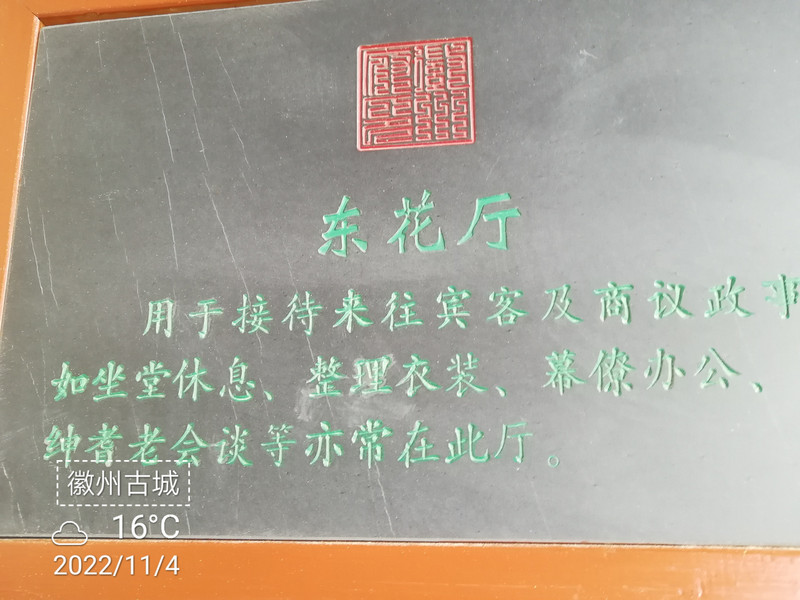 东花厅
用于接待来往宾客及商议政事
如坐堂休息、整理衣装、幕僚办公、
绅耆老会谈等亦常在此厅。
徽州古城
16°C
2022/11/4